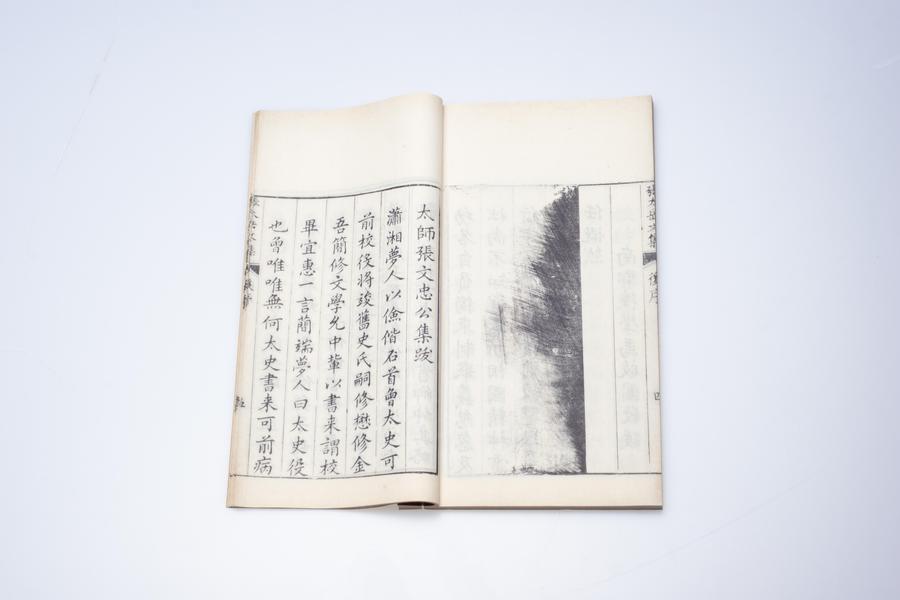 張太岳文集
後序
四
太師張文忠公集跋
瀟湘夢人以儉偕石首曾太史可
前校役將竣舊史氏嗣修懋修金
吾簡修文學允中輩以書來謂校
畢宜惠一言簡端夢人曰太史役
也曾唯唯無何太史書來可前病
張太岳文集